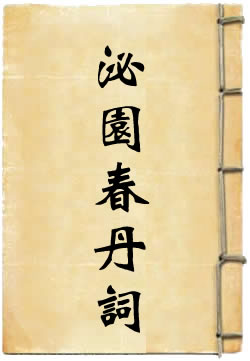 泌園春丹詞